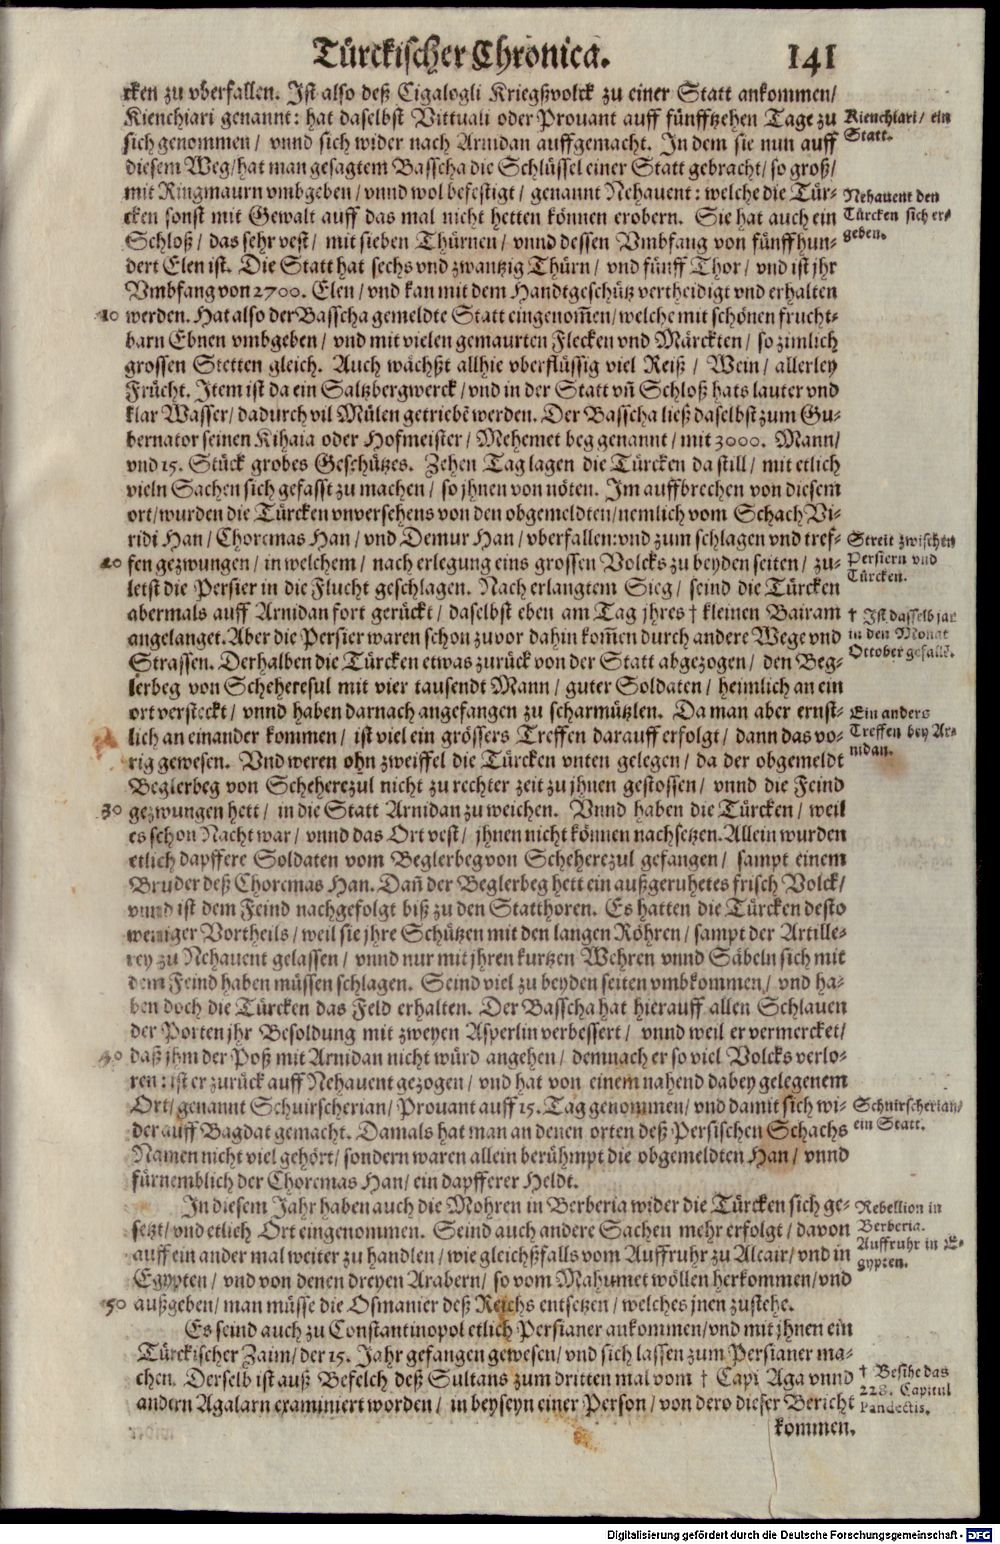 Türckischer Chronica. 141
rcken zu vberfallen. Ist also deß Cigalogli Kriegßvolck zu einer Statt ankommen/
Kienchiari genannt: hat daselbst Vittuali oder Provant auff fünfftzehen Tage zu
sich genommen/ vnnd sich wider nach Arnidan auffgemacht. In dem sie nun auff
diesem Weg/ hat man gesagtem Basscha die Schlüssel einer Statt gebracht/ so groß/
mit Ringmaurn vmbgeben/ vnnd wol befestigt/ genannt Nehauent: welche die Tür-
cken sonst mit Gewalt auff das mal nicht hetten können erobern. Sie hat auch ein
Schloß/ das sehr vest/ mit sieben Thürnen/ vnnd dessen Vmbfang von fünffhun-
dert Elen ist. Die Statt hat sechs vnd zwantzig Thürn/ vnd fünff Thor/ vnd ist jhr
Vmbfang von 2700. Elen/ vnd kan mit dem Handtgeschütz vertheidigt vnd erhalten
10 werden. Hat also der Basscha gemeldte Statt eingenom̃en/ welche mit schönen frucht-
barn Ebnen vmbgeben/ vnd mit vielen gemaurten Flecken vnd Märckten/ so zimlich
grossen Stetten gleich. Auch wächßt allhie vberflüssig viel Reiß/ Wein/ allerley
Frücht. Item ist da ein Saltzbergwerck/ vnd in der Statt vñ Schloß hats lauter vnd
klar Wasser/ dadurch vil Mülen getriebẽ werden. Der Basscha ließ daselbst zum Gu-
bernator seinen Kihaia oder Hofmeister/ Mehemet beg genannt/ mit 3000. Mann/
vnd 15. Stück grobes Geschützes. Zehen Tag lagen die Türcken da still/ mit etlich
vieln Sachen sich gefasst zu machen/ so jhnen von nöten. Im auffbrechen von diesem
ort/ wurden die Türcken vnversehens von den obgemeldten/ nemlich vom Schach Vi-
ridi Han/ Chorcmas Han/ vnd Demur Han/ vberfallen: vnd zum schlagen vnd tref-
20 fen gezwungen/ in welchem/ nach erlegung eins grossen Volcks zu beyden seiten/ zu-
letst die Persier in die Flucht geschlagen. Nach erlangtem Sieg/ seind die Türcken
abermals auff Arnidan fort gerückt/ daselbst eben am Tag jhres † kleinen Bairam
angelanget. Aber die Persier waren schon zuvor dahin kom̃en durch andere Wege vnd
Strassen. Derhalben die Türcken etwas zurück von der Statt abgezogen/ den Beg-
lerbeg von Scheheresul mit vier tausendt Mann/ guter Soldaten/ heimlich an ein
ort versteckt/ vnnd haben darnach angefangen zu scharmützlen. Da man aber ernst-
lich an einander kommen/ ist viel ein grössers Treffen darauff erfolgt/ dann das vo-
rig gewesen. Vnd weren ohn zweiffel die Türcken vnten gelegen/ da der obgemeldt
Beglerbeg von Scheherezul nicht zu rechter zeit zu jhnen gestossen/ vnnd die Feind
30 gezwungen hett/ in die Statt Arnidan zu weichen. Vnnd haben die Türcken/ weil
es schon Nacht war/ vnnd das Ort vest/ jhnen nicht können nachsetzen. Allein wurden
etlich dapffere Soldaten vom Beglerbeg von Scheherezul gefangen/ sampt einem
Bruder deß Chorcmas Han. Dañ der Beglerbeg hett ein außgeruhetes frisch Volck/
vnnd ist dem Feind nachgefolgt biß zu den Statthoren. Es hatten die Türcken desto
weniger Vortheils/ weil sie jhre Schützen mit den langen Röhren/ sampt der Artille-
rey zu Nehauent gelassen/ vnnd nur mit jhren kurtzen Wehren vnnd Säbeln sich mit
dem Feind haben müssen schlagen. Seind viel zu beyden seiten vmbkommen/ vnd ha-
ben doch die Türcken das Feld erhalten. Der Basscha hat hierauff allen Schlauen
der Porten jhr Besoldung mit zweyen Asperlin verbessert/ vnnd weil er vermercket/
40 daß jhm der Poß mit Arnidan nicht würd angehen/ demnach er so viel Volcks verlo-
ren: ist er zurück auff Nehauent gezogen/ vnd hat von einem nahend dabey gelegenem
Ort/ genannt Schuirscherian/ Provant auff 15. Tag genommen/ vnd damit sich wi-
der auff Bagdat gemacht. Damals hat man an denen orten deß Persischen Schachs
Namen nicht viel gehört/ sondern waren allein berühmpt die obgemeldten Han/ vnnd
fürnemblich der Chorcmas Han/ ein dapfferer Heldt.
In diesem Jahr haben auch die Mohren in Berberia wider die Türcken sich ge-
setzt/ vnd etlich Ort eingenommen. Seind auch andere Sachen mehr erfolgt/ davon
auff ein ander mal weiter zu handlen/ wie gleichßfalls vom Auffruhr zu Alcair/ vnd in
Egypten/ vnd von denen dreyen Arabern/ so vom Mahumet wöllen herkommen/ vnd
50 außgeben/ man müsse die Osmanier deß Reichs entsetzen/ welches jnen zustehe.
Es seind auch zu Constantinopol etlich Persianer ankommen/ vnd mit jhnen ein
Türckischer Zaim/ der 15. Jahr gefangen gewesen/ vnd sich lassen zum Persianer ma-
chen. Derselb ist auß Befelch deß Sultans zum dritten mal vom † Capi Aga vnnd
andern Agalarn examiniert worden/ in beyseyn einer Person/ von dero dieser Bericht
kommen.
Kienchiari/ ein
Statt.
Nehauent den
Türcken sich er-
geben.
Streit zwischen
Persiern vnd
Türcken.
† Ist dasselb jar
in den Monat
Ottober gefallẽ.
Ein anders
Treffen bey Ar-
nidan.
Schuirscherian/
ein Statt.
Rebellion in
Berberia.
Auffruhr in E-
gypten.
† Besihe das
228. Capitul
Pandectis.
Digitalisierung gefördert durch die Deutsche Forschungsgemeinschaft - DFG